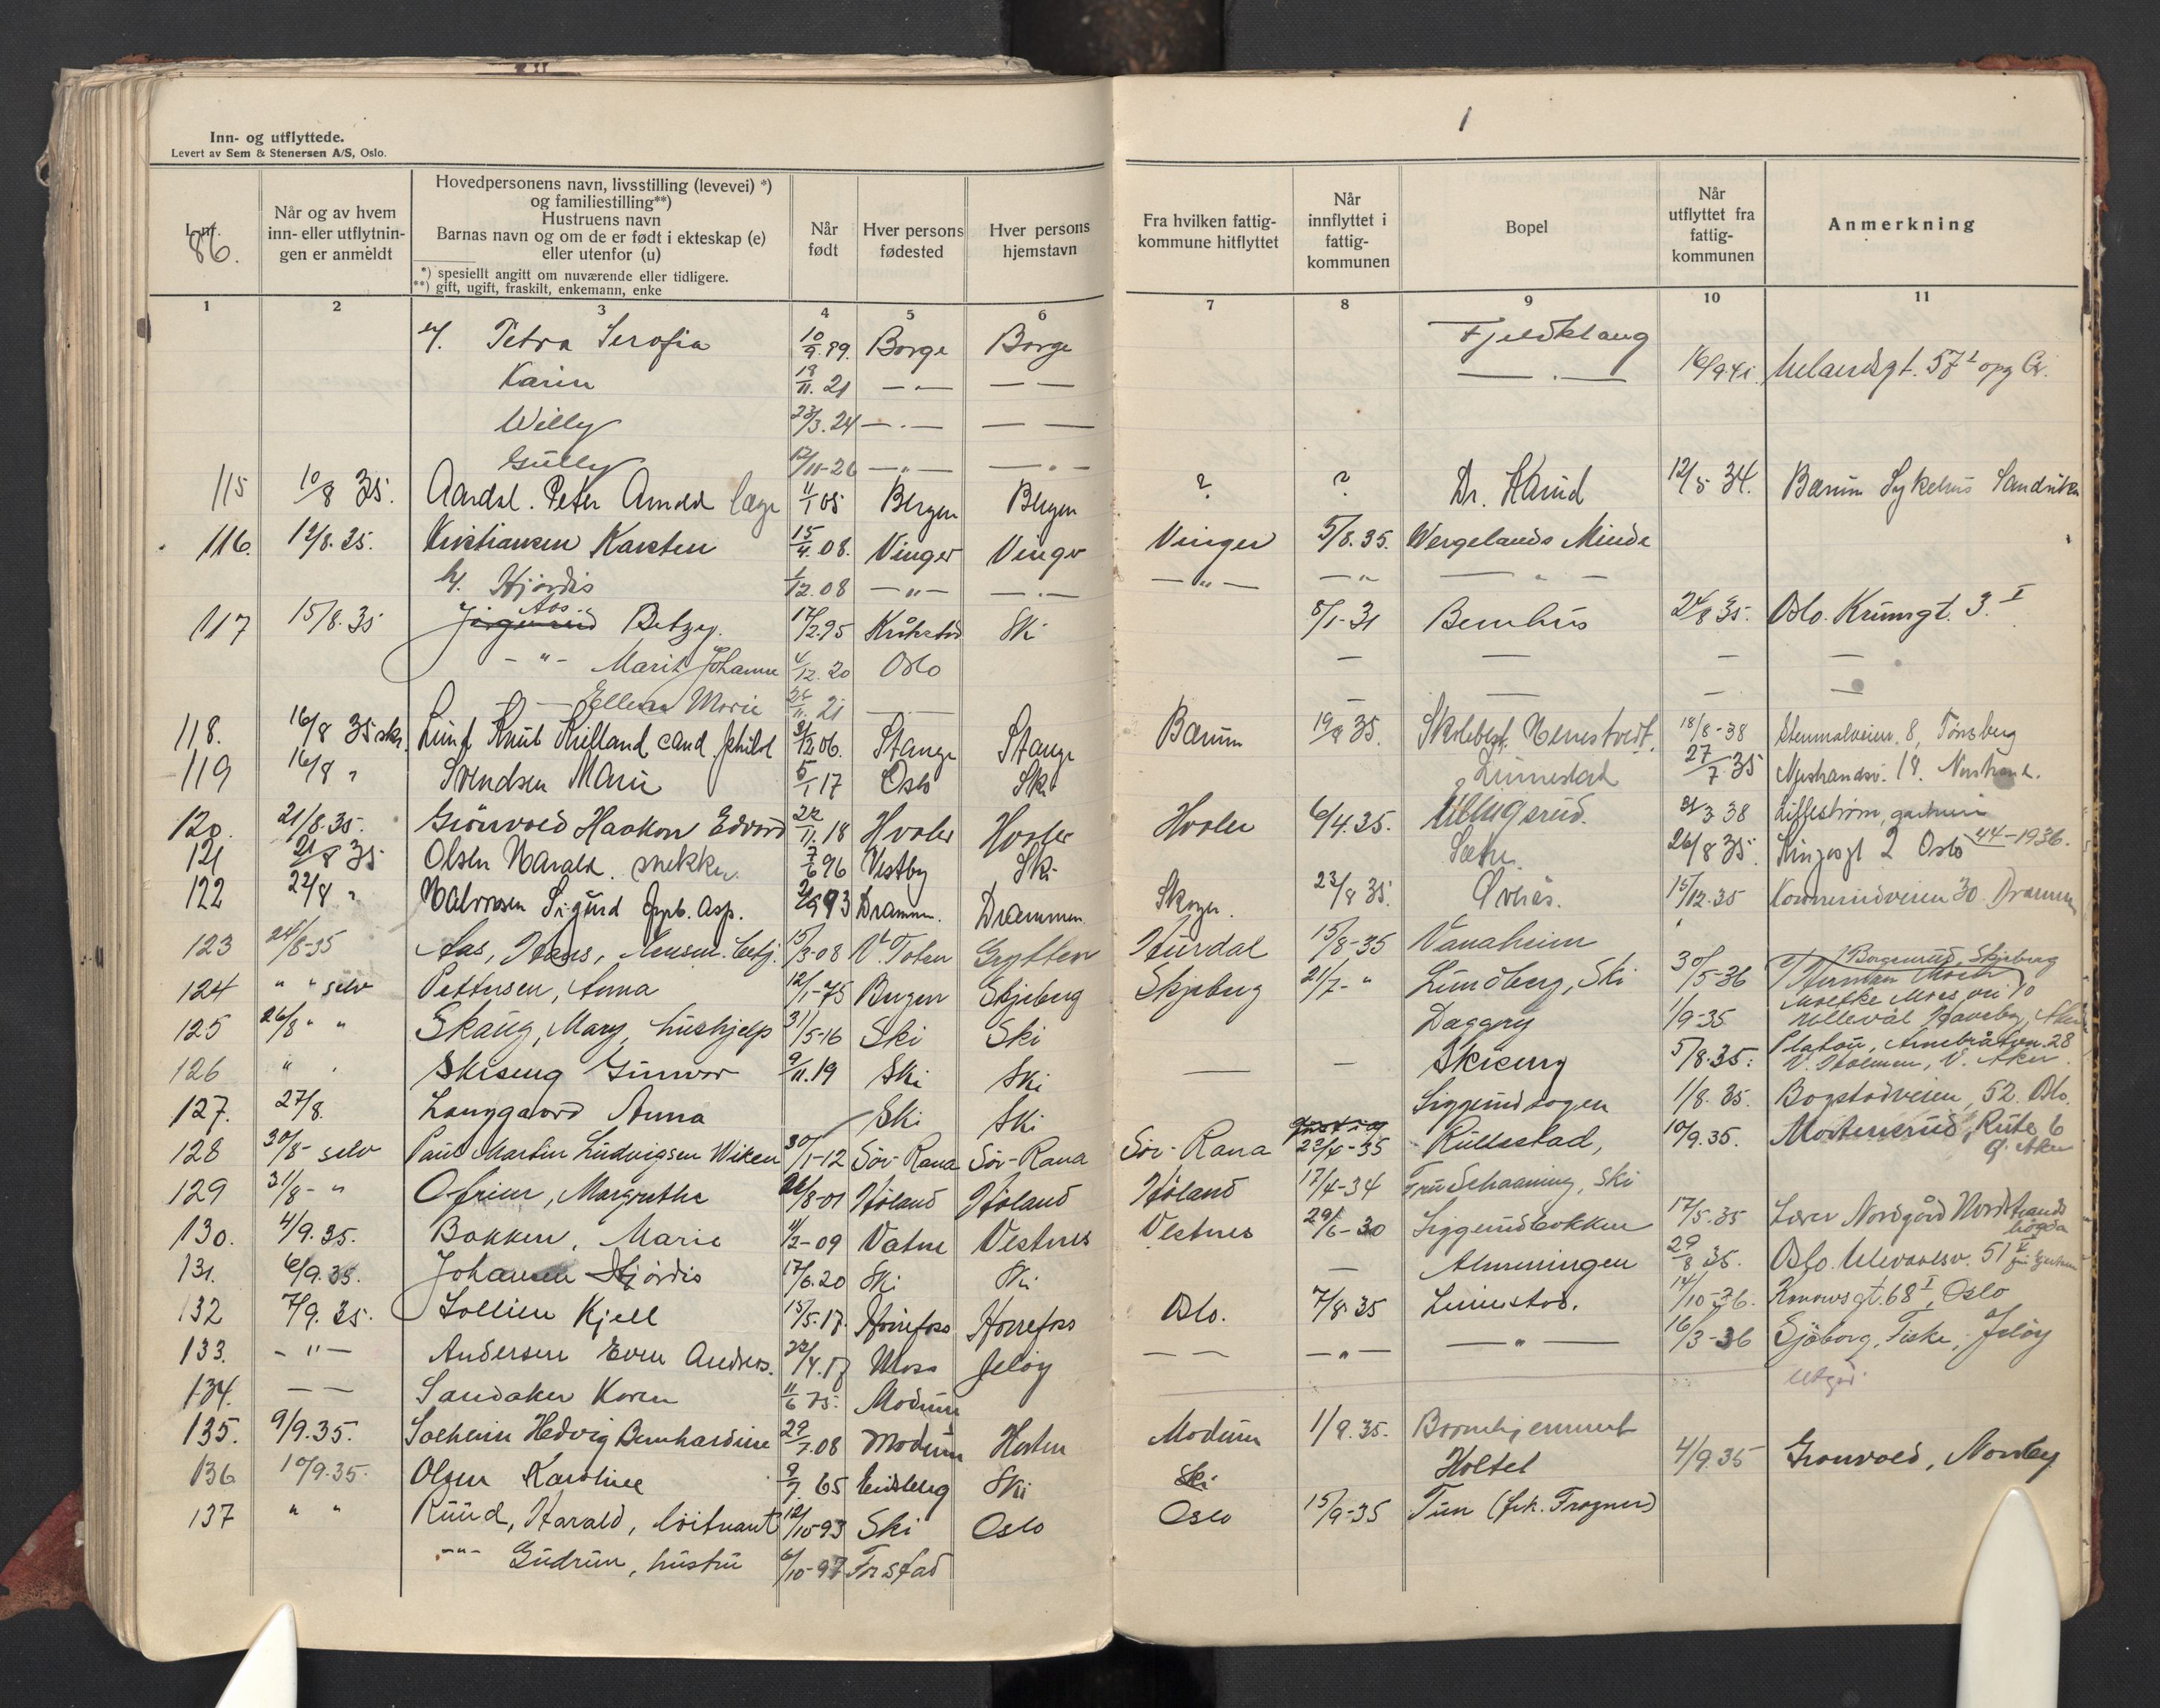 Inn- og utflyttede.
Levert av Sem & Stenersen A/S, Oslo.
1
86.
Når og av hvem inn- eller utflytnin-gen er anmeldt
Hovedpersonens navn, livsstilling (levevei) *) og familiestilling**) Hustruens navn Barnas navn og om de er født i ekteskap (e) eller utenfor (u)
*) spesiellt angitt om nuværende eller tidligere.
**) gift, ugift, fraskilt, enkemann, enke
Når født
Hver persons fødested
Hver persons hjemstavn
Fra hvilken fattig-kommune hitflyttet
Når innflyttet i fattig-kommunen
Bopel
Når utflyttet fra fattig-kommunen
Anmerkning
1 2 3 4 5 6 7 8 9 10 11
Petra Serofia 10/9.89. Borge Borge Fjeldklang
Karin 19/11.21 — — — — — . — 16/9.41. 57 opg
Willy 23/3.24 — . — — —
Gully 12/11-26 — " — — " —
115 10/8 35. Aardal. Peter Arnold læge 11/1 05 Bergen Bergen ? ? Dr. Harud 12/5 34. Bærum Sykehus Sandvika
116. 12/8.35. Kristiansen Karsten 15/4.08. Vinger Vinger Vinger 5/8.35. Wergelands Minde
h. Hjørdis 1/12.08 — " — — . — — " — — " — " —
117 15/8.35 Jørgensrud Aas. Betzy. 17/2.95 Kråkstad Ski 8/1-31 Bernhus 24/8 35. Oslo. Krumsgt. 3. I
— " — Marit Johanne 4/12.20 Oslo — — — —
— — Ellen Marie 21 — — — — — —
118. 16/8 35 skr. Lund Knut Kielland cand. philol 31/12 06. Stange Stange Bærum 19/8 35. Skolebest. Nenstvedt. 18/8-38 8, Tønsberg
119 16/8 " Svendsen Marie 5/1 17 Oslo Ski Linnestad 27/7 35 Njustrandsv. 18. Norstrand.
120. 21/8.35. Grönvold Haakon Edvard 22/11.18 Hvaler Hvaler Hvaler 6/4.35. Ullugsrud. 31/3 38 Lillestrøm,
121 21/8 35 Olsen Harald. snekker. 7/6 96 Vestby Ski Sætre 26/8 35. Kingosgt 2 Oslo 44-1936.
122 22/8 " Halvorsen Sigurd Jernb. Asp. 2/9 93 Drammen. Drammen Skoger. 23/8 35. Øvrås. 15/12.35 Konnerudveien 30 Drammen
123 24/8-35 Aas, Hans, Mensen. betj. 15/3-08 V. Toten Grytten Hurdal 15/8-35 Vanaheim
124 " " selv Pettersen, Anna 12/1-75 Bergen Skjeberg Skjeberg 21/7- " Lundberg, Ski 30/5-36 Borgenrud, Skjeberg
125 26/8 " " Skaug, Mary, hushjelp 31/5-16 Ski Ski Daggry 1/9-35 Moltke Moes vei 10 Ullevål Haveby, Aker
126 " Skiseng Gunvor 9/11.19 Ski Ski — — Skiseng 5/8.35. Platou, Arnebråtvn. 28 V. Holmen, V. Aker.
127. 27/8. Langgaard Anna Ski Ski Siggerudhagen 1/8.35. Bogstadveien 52. Oslo.
128 30/8- selv Paul Martin Ludvigsen Wiken 30/1-12 Sör-Rana Sör-Rana Sör-Rana 22/4-35 Rullestad, 10/9.35. Mortensrud, Rute 6 Ø. Aker
129 31/8- " Ofrim, Margrethe 26/8-01 Höland Höland Höland 17/4-34 Fru Schaaning, Ski
130. 4/9.35. Bakken, Marie 11/2-09 Vatne Vestnes Vestnes 29/6-30 Siggerudbakken 17/5.35 Lærer Nordgård Nordstrands högda
131. 6/9.35. Johansen Hjördis 17/6.20 Ski Ski — Almenningen 29/8 35. Oslo. Ulevaalsv. 51 V
132 7/9.35. Lollien Kjell 15/5.17. Hønefoss Hønefoss Oslo. 7/8.35 Linnestad. 14/10-36. Konowsgt. 68 I, Oslo
133. — " — Andersen Even Andreas. 22/4.17 Moss Jeløy — — — " — — " — 16/3-36 Sjøborg, Fiske, Jeløy
134. — — Sandaker Karen 11/6 75. Modum utgår
135. 9/9.35. Solheim Hedvig Bernhardine 29/7.08 Modum Horten Modum 1/9.35. Barnehjemmet
136 10/9.35. Olsen Karoline 9/7.65 Eidsberg Ski Ski Holtet 4/9.35 Grønvold, Nordby
137 " " Ruud, Harald, löitnant 12/10-93 Ski Oslo Oslo 15/9-35 Tun (frk. Frogner)
— " — Gudrun, hustru 6/10-97 Fr.stad